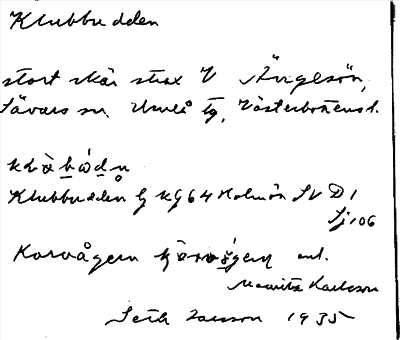 Klubbudden
stort skär strax V Ängesön,
Sävars sn. Umeå tg, Västerbottens l.
Klubbudden G kg 64 Holmön SV D 1
Sj 106
Korvågern enl.
Mauritz Karlsson
Seth Larsson 1935